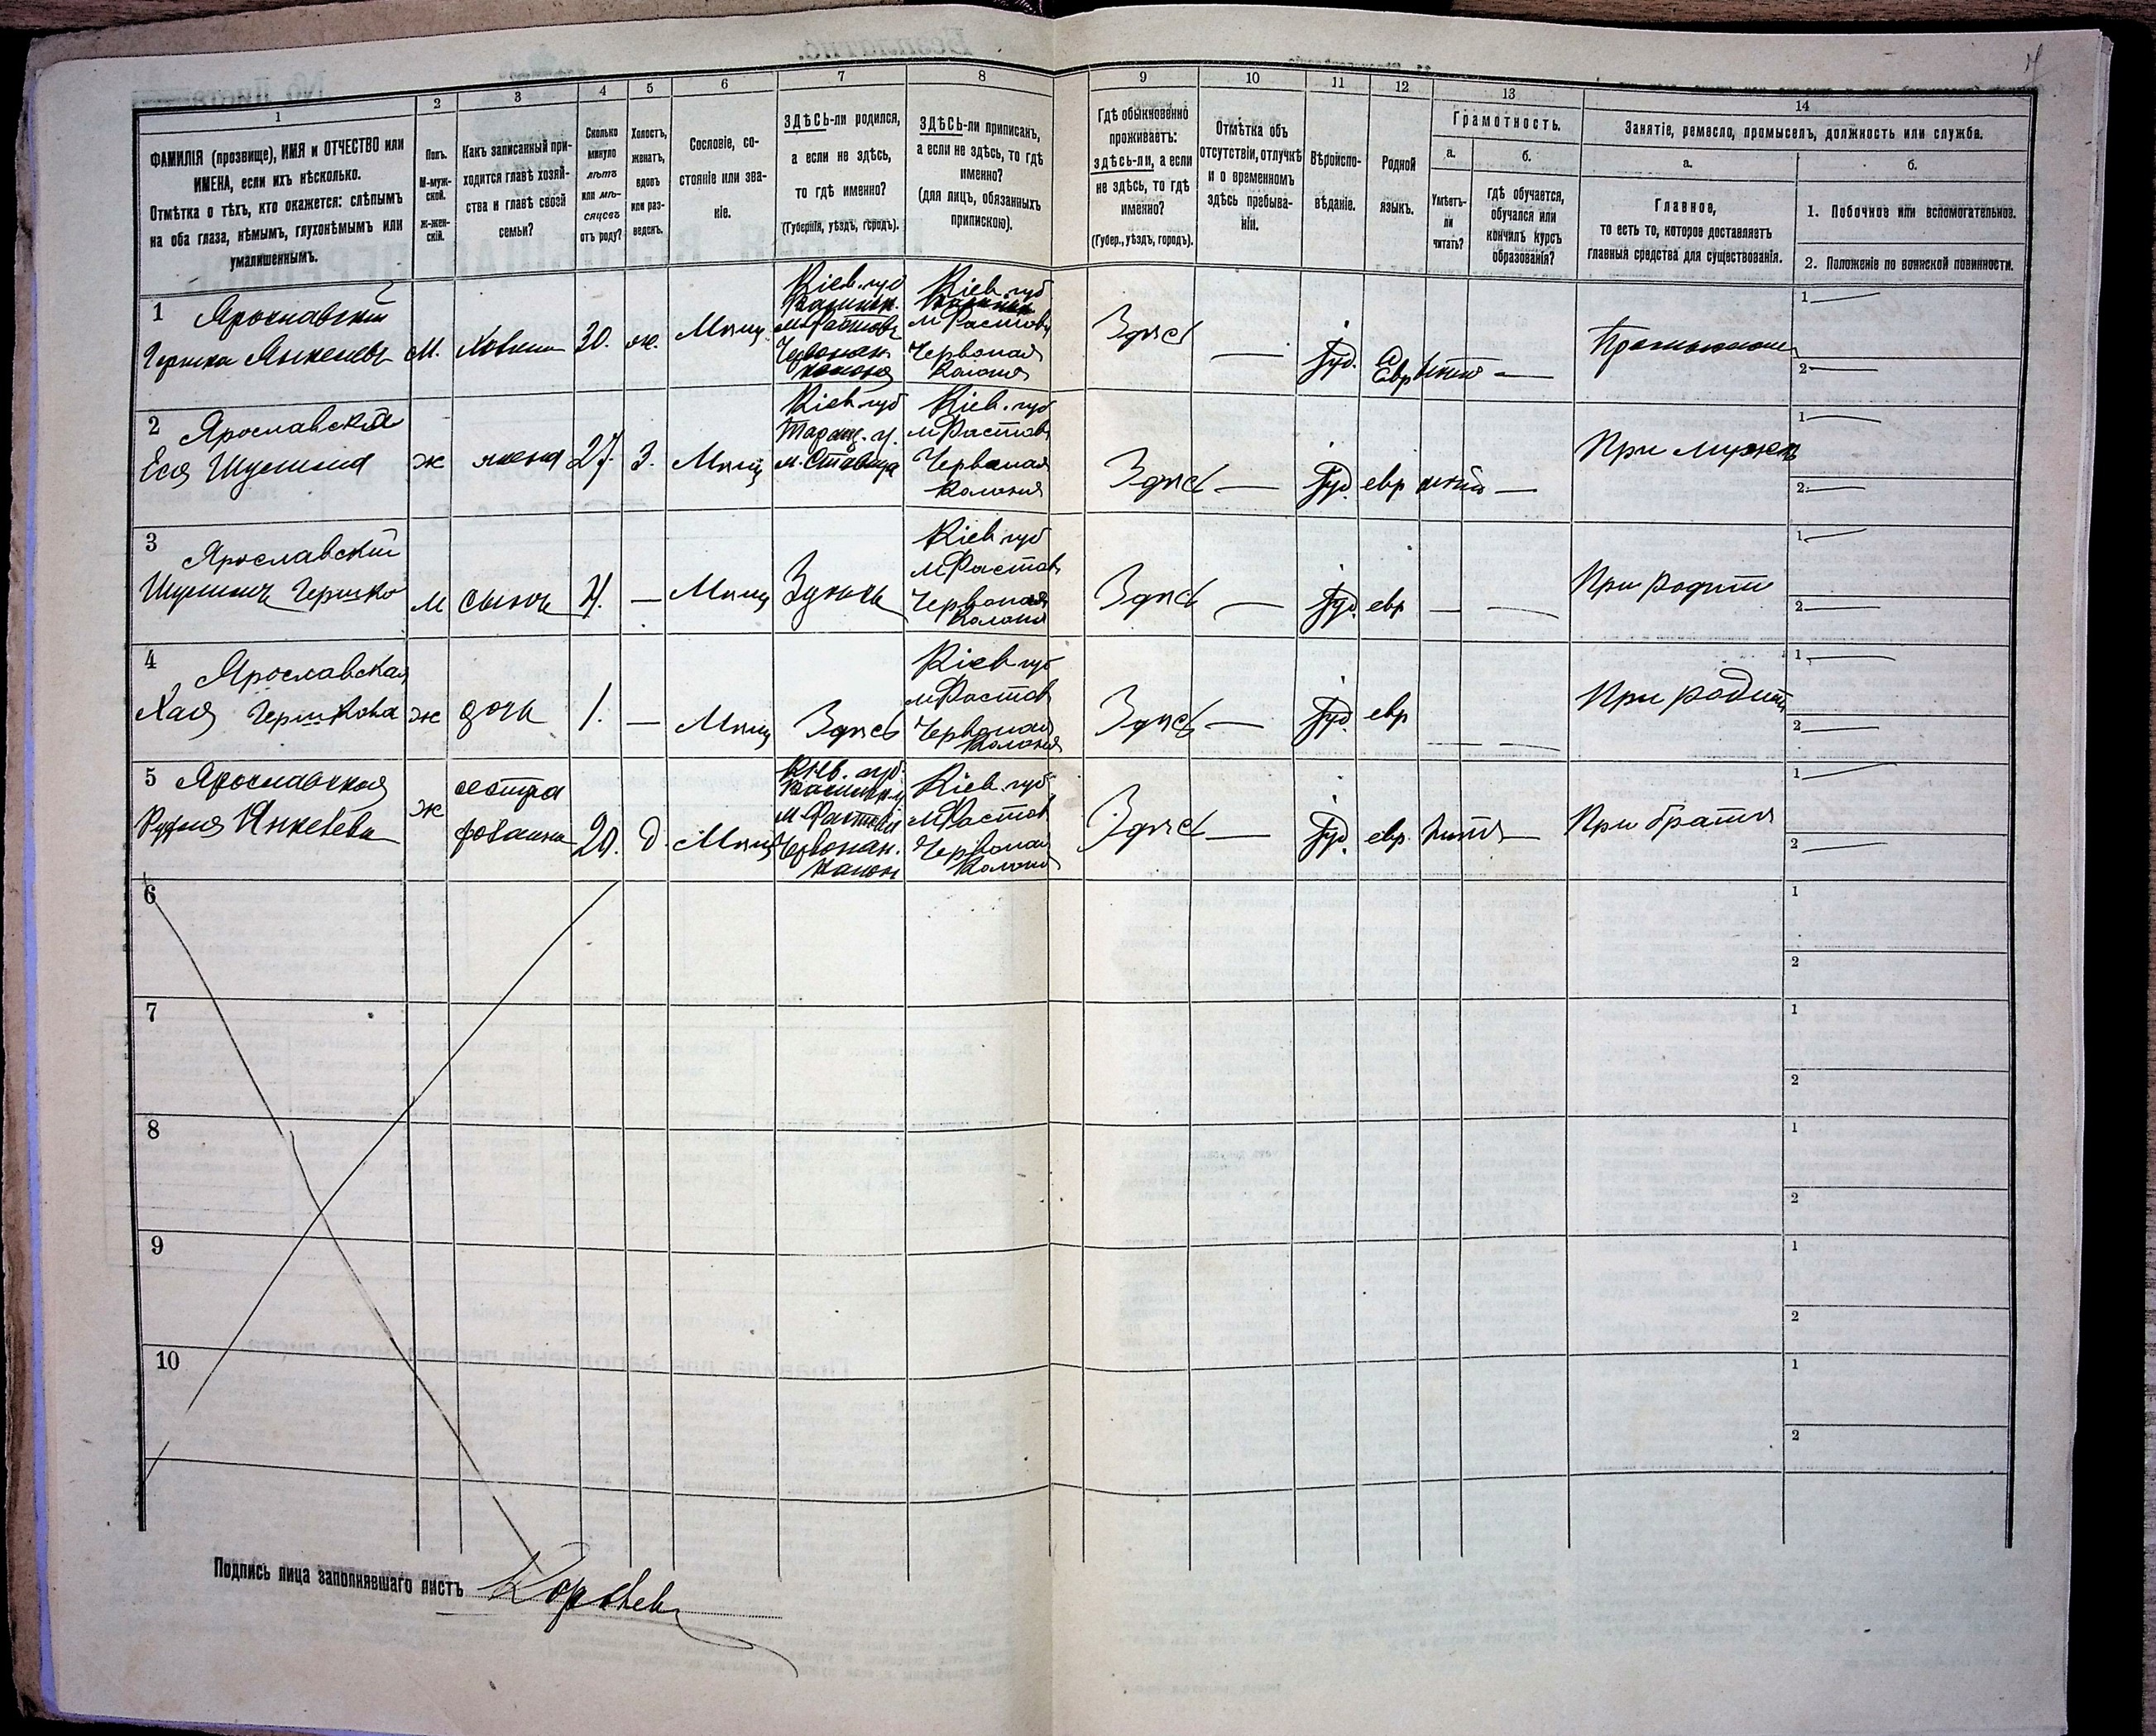 1
2
3
4
5
6
7
8
9
10
11
12
13
14
ФАМИЛІЯ (прозвище), ИМЯ и ОТЧЕСТВО или
ИМЕНА, если ихъ нѣсколько.
Отмѣтка о тѣхъ, кто окажется: слѣпымъ
на оба глаза, нѣмымъ, глухонѣмымъ или
умалишеннымъ.
Полъ.
М-муж-
ской.
Ж-жен-
скій.
Какъ записанный при-
ходится главѣ хозяй-
ства и главѣ своей
семьи?
Сколько
минуло
лѣтъ
или мѣ-
сяцевъ
отъ роду?
Холостъ,
женатъ,
вдовъ
или раз-
веденъ.
Сословіе, со-
стояніе или зва-
ніе.
ЗДѢСЬ-ли родился,
а если не здѣсь,
то гдѣ именно?
(Губернія, уѣздъ, городъ).
ЗДѢСЬ-ли приписанъ,
а если не здѣсь, то гдѣ
именно?
(для лицъ, обязанныхъ
припискою).
Гдѣ обыкновенно
проживаетъ:
здѣсь-ли, а если
не здѣсь, то гдѣ
именно?
(Губер., уѣздъ, городъ).
Отмѣтка объ
отсутствіи, отлучкѣ
и о временномъ
здѣсь пребыва-
ніи.
Вѣроиспо-
вѣданіе.
Родной
языкъ.
Грамотность.
а.
Умѣетъ-
ли
читать?
б.
гдѣ обучается,
обучался или
кончилъ курсъ
образованія?
Занятіе, ремесло, промыселъ, должность или служба.
а.
Главное,
то есть то, которое доставляетъ
главныя средства для существованія.
б.
1. Побочное или вспомогательное.
2. Положеніе по воинской повинности.
1
Ярославский
М.
30.
Мѣщ
Кіев. губ
Кіев. губ
м Фастовъ
Червоная
Колонія
Здѣсь
Іуд.
Евр
1
2
2 Ярославская
Еся
ж
жена
27.
З.
Мѣщ
Кіев губ
Таращ. у.
м. Ставища
Кіев. губ
м Фастовъ
Червоная
Колонія
Здѣсь
Іуд.
евр
При мужѣ
1
2
3
Ярославский
Гершко
м
сынъ
4.
Мѣщ
Здѣсь
Кіев губ
м Фастовъ
Червоная
Колонія
Здѣсь
Іуд.
евр
При родит
1
2
4
Ярославская
Хая Гершкова
ж
дочь
1.
Мѣщ
Здѣсь
Кіев губ
м Фастов
Червоная
Колонія
Здѣсь
Іуд.
евр
При родит
1
2
5 Ярославская
ж
сестра
20.
д.
Мѣщ
Кіев. губ.
Кіев. губ
м Фастов
Червоная
Колонія
Здѣсь
Іуд.
евр.
При братѣ
1
2
6
1
2
7
1
2
8
1
2
9
1
2
10
1
2
Подпись лица заполнявшаго листъ